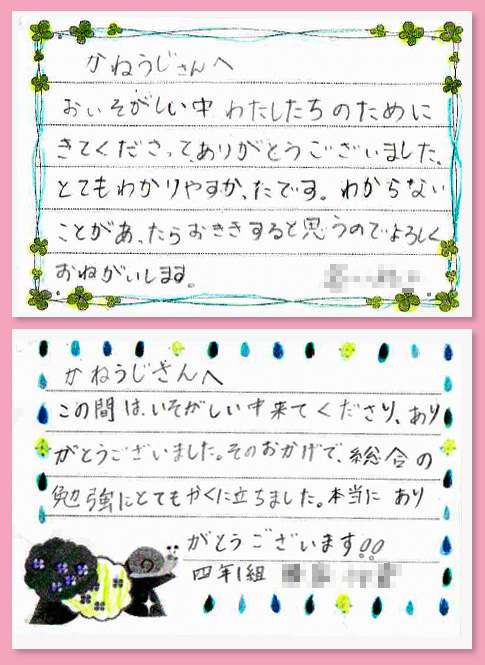 かねうじさんへ
おいそがしい中、わたしたちのために
きてくださって、ありがとうございました。
とてもわかりやすかったです。わからない
ことがあったらおききすると思うのでよろしく
おねがいします。
かねうじさんへ
この間は、いそがしい中来てくださり、あり
がとうございました。そのおかげで、総合の
勉強にとてもやくに立ちました。本当に あり
がとうございます!!
四年1組